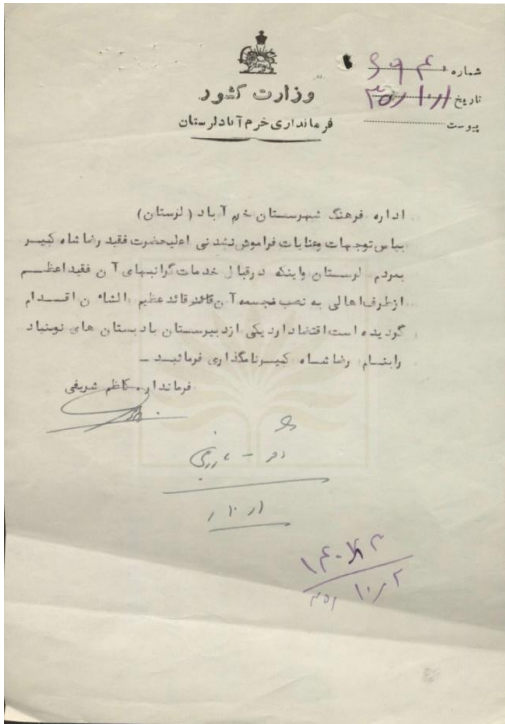 وزارت کشور
فرمانداری خرم آباد لرستان
شماره ۶۹۴
تاریخ
پیوست
اداره فرهنگ شهرستان خرم آباد (لرستان)
بپاس توجهات وعنایات فراموش نشدنی اعلیحضرت فقید رضا شاه کبیر
بمردم لرستان واینکه درقبال خدمات گرانبهای آن فقید اعظم
ازطرف اهالی به نصب مجسمه آن قائد عظیم الشان اقدام
گردیده است اقتضا دارد یکی از دبیرستان یا دبستان های نوبنیاد
را بنام رضا شاه کبیر نامگذاری فرمائید ـ
فرماندار ـ کاظم شریفی
۱۰/۲